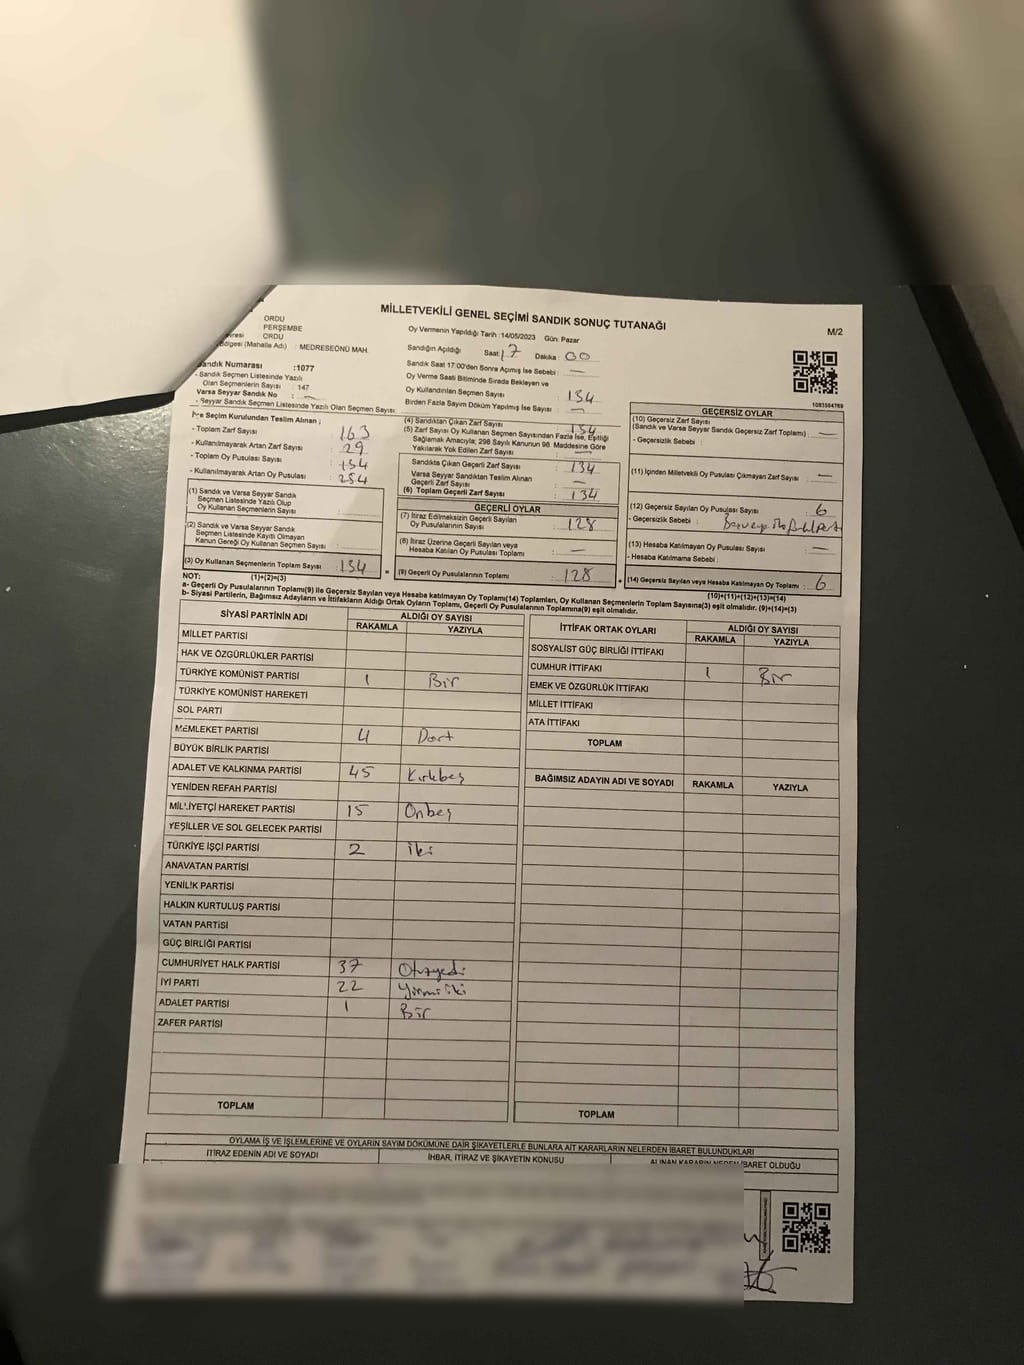 MİLLETVEKİLİ GENEL SEÇİMİ SANDIK SONUÇ TUTANAĞI
M/2
ORDU
PERŞEMBE
ORDU
(Mahalle Adı) : MEDRESEÖNÜ MAH.
Oy Vermenin Yapıldığı Tarih :14/05/2023 Gün: Pazar
Sandığın Açıldığı Saat: 17 Dakika : 00
Sandık Saat 17:00'den Sonra Açılmış İse Sebebi : —
Oy Verme Saati Bitiminde Sırada Bekleyen ve
Oy Kullandırılan Seçmen Sayısı 134
Birden Fazla Sayım Döküm Yapılmış İse Sayısı : —
Sandık Numarası :1077
- Sandık Seçmen Listesinde Yazılı
Olan Seçmenlerin Sayısı : 147
Varsa Seyyar Sandık No : —
- Seyyar Sandık Seçmen Listesinde Yazılı Olan Seçmen Sayısı:
İlçe Seçim Kurulundan Teslim Alınan ;
- Toplam Zarf Sayısı : 163
- Kullanılmayarak Artan Zarf Sayısı : 29
- Toplam Oy Pusulası Sayısı
- Kullanılmayarak Artan Oy Pusulası : 254
(1) Sandık ve Varsa Seyyar Sandık
Seçmen Listesinde Yazılı Olup
Oy Kullanan Seçmenlerin Sayısı :
(2) Sandık ve Varsa Seyyar Sandık
Seçmen Listesinde Kayıtlı Olmayan
Kanun Gereği Oy Kullanan Seçmen Sayısı :
(3) Oy Kullanan Seçmenlerin Toplam Sayısı : 134
(1)+(2)=(3)
(4) Sandıktan Çıkan Zarf Sayısı : 134
(5) Zarf Sayısı Oy Kullanan Seçmen Sayısından Fazla İse, Eşitliği
Sağlamak Amacıyla; 298 Sayılı Kanunun 98. Maddesine Göre
Yakılarak Yok Edilen Zarf Sayısı : —
Sandıkta Çıkan Geçerli Zarf Sayısı : 134
Varsa Seyyar Sandıktan Teslim Alınan
Geçerli Zarf Sayısı : —
(6) Toplam Geçerli Zarf Sayısı : 134
GEÇERLİ OYLAR
(7) İtiraz Edilmeksizin Geçerli Sayılan
Oy Pusulalarının Sayısı : 128
(8) İtiraz Üzerine Geçerli Sayılan veya
Hesaba Katılan Oy Pusulası Toplamı : —
(9) Geçerli Oy Pusulalarının Toplamı : 128
1083504769
GEÇERSİZ OYLAR
(10) Geçersiz Zarf Sayısı
(Sandık ve Varsa Seyyar Sandık Geçersiz Zarf Toplamı) : —
- Geçersizlik Sebebi :
(11) İçinden Milletvekili Oy Pusulası Çıkmayan Zarf Sayısı : —
(12) Geçersiz Sayılan Oy Pusulası Sayısı : 6
- Geçersizlik Sebebi :
(13) Hesaba Katılmayan Oy Pusulası Sayısı : —
- Hesaba Katılmama Sebebi :
(14) Geçersiz Sayılan veya Hesaba Katılmayan Oy Toplamı : 6
(10)+(11)+(12)+(13)=(14)
NOT:
a- Geçerli Oy Pusulalarının Toplamı(9) ile Geçersiz Sayılan veya Hesaba Katılmayan Oy Toplamı(14) Toplamları, Oy Kullanan Seçmenlerin Toplam Sayısına(3) eşit olmalıdır. (9)+(14)=(3)
b- Siyasi Partilerin, Bağımsız Adayların ve İttifakların Aldığı Ortak Oyların Toplamı, Geçerli Oy Pusulalarının Toplamına(9) eşit olmalıdır.
SİYASİ PARTİNİN ADI ALDIĞI OY SAYISI
RAKAMLA YAZIYLA
MİLLET PARTİSİ
HAK VE ÖZGÜRLÜKLER PARTİSİ
TÜRKİYE KOMÜNİST PARTİSİ 1 Bir
TÜRKİYE KOMÜNİST HAREKETİ
SOL PARTİ
MEMLEKET PARTİSİ 4 Dört
BÜYÜK BİRLİK PARTİSİ
ADALET VE KALKINMA PARTİSİ 45 Kırkbeş
YENİDEN REFAH PARTİSİ
MİLLİYETÇİ HAREKET PARTİSİ 15 Onbeş
YEŞİLLER VE SOL GELECEK PARTİSİ
TÜRKİYE İŞÇİ PARTİSİ 2 İki
ANAVATAN PARTİSİ
YENİLİK PARTİSİ
HALKIN KURTULUŞ PARTİSİ
VATAN PARTİSİ
GÜÇ BİRLİĞİ PARTİSİ
CUMHURİYET HALK PARTİSİ 37 Otuzyedi
İYİ PARTİ 22 Yirmiiki
ADALET PARTİSİ 1 Bir
ZAFER PARTİSİ
TOPLAM
İTTİFAK ORTAK OYLARI ALDIĞI OY SAYISI
RAKAMLA YAZIYLA
SOSYALİST GÜÇ BİRLİĞİ İTTİFAKI
CUMHUR İTTİFAKI 1 Bir
EMEK VE ÖZGÜRLÜK İTTİFAKI
MİLLET İTTİFAKI
ATA İTTİFAKI
TOPLAM
BAĞIMSIZ ADAYIN ADI VE SOYADI RAKAMLA YAZIYLA
TOPLAM
OYLAMA İŞ VE İŞLEMLERİNE VE OYLARIN SAYIM DÖKÜMÜNE DAİR ŞİKAYETLERLE BUNLARA AİT KARARLARIN NELERDEN İBARET BULUNDUKLARI
İTİRAZ EDENİN ADI VE SOYADI İHBAR, İTİRAZ VE ŞİKAYETİN KONUSU ALINAN KARARIN NEDEN İBARET OLDUĞU